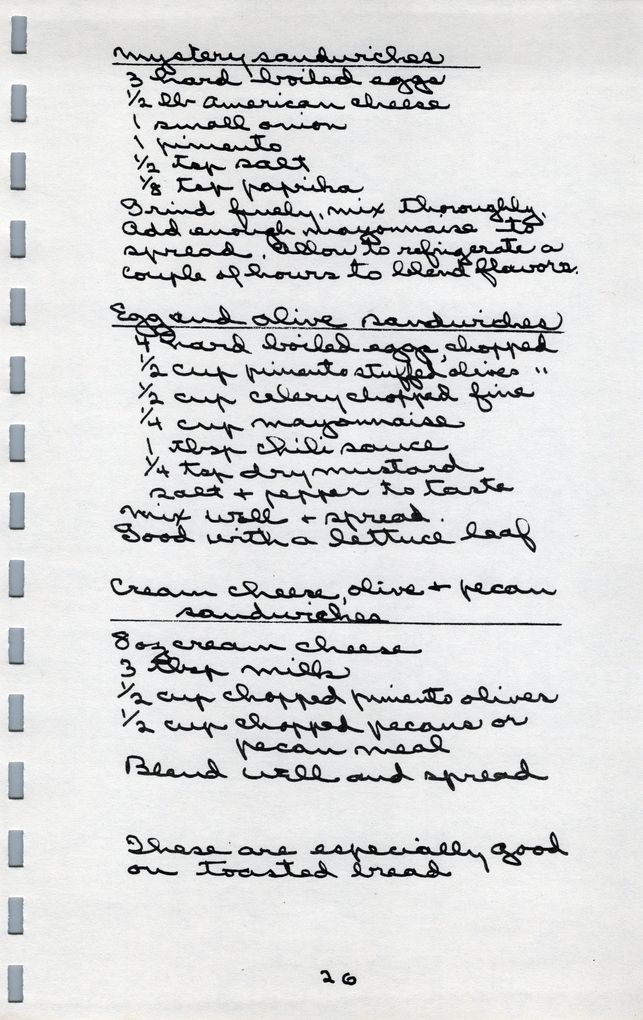 mystery sandwiches
3 hard boiled eggs
1/2 lb American cheese
1 small onion
1 pimento
1/2 tsp salt
1/8 tsp paprika
Grind finely, mix thoroughly.
Add enough mayonnaise to
spread. Allow to refrigerate a
couple of hours to blend flavors.
Egg and olive sandwiches
4 hard boiled eggs, chopped
1/2 cup pimento stuffed olives "
1/2 cup celery chopped fine
1/4 cup mayonnaise
1 tbsp chili sauce
1/4 tsp dry mustard
salt + pepper to taste
mix well + spread.
Good with a lettuce leaf
Cream cheese, olive + pecan
sandwiches
8 oz cream cheese
3 tbsp milk
1/2 cup chopped pimento olives
1/2 cup chopped pecans or
pecan meal
Blend well and spread
These are especially good
on toasted bread
26